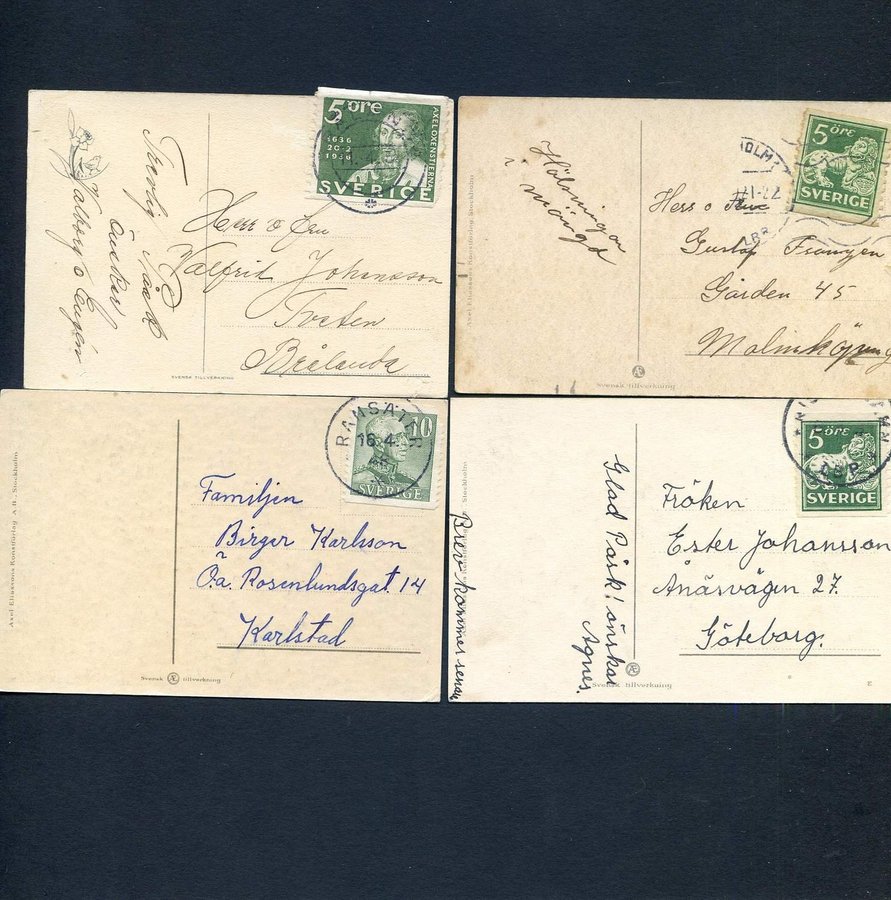 5 öre
1636
1936
AXEL OXENSTIERNA
SVERIGE
Trevlig Påsk
önskar
Valborg o Eugén
Herr o Fru
Valfrid Johansson
Tveten
Brålanda
SVENSK TILLVERKNING
5 ÖRE
SVERIGE
Hälsningar
i
mängd
Herr o Fru
Gustaf
Gården 45
Malmköping
Axel Eliassons Konstförlag Stockholm
Svensk tillverkning
RANSÄTER
16.4
10
SVERIGE
Familjen
Birger Karlsson
Ö:a. Rosenlundsgat. 14
Karlstad
Axel Eliassons Konstförlag A.B. Stockholm
Svensk Æ tillverkning
5 ÖRE
SVERIGE
Glad Påsk! önskar
Agnes.
Brev kommer senare
Fröken
Ester Johansson
Ånäsvägen 27.
Göteborg.
Svensk Æ tillverkning
E